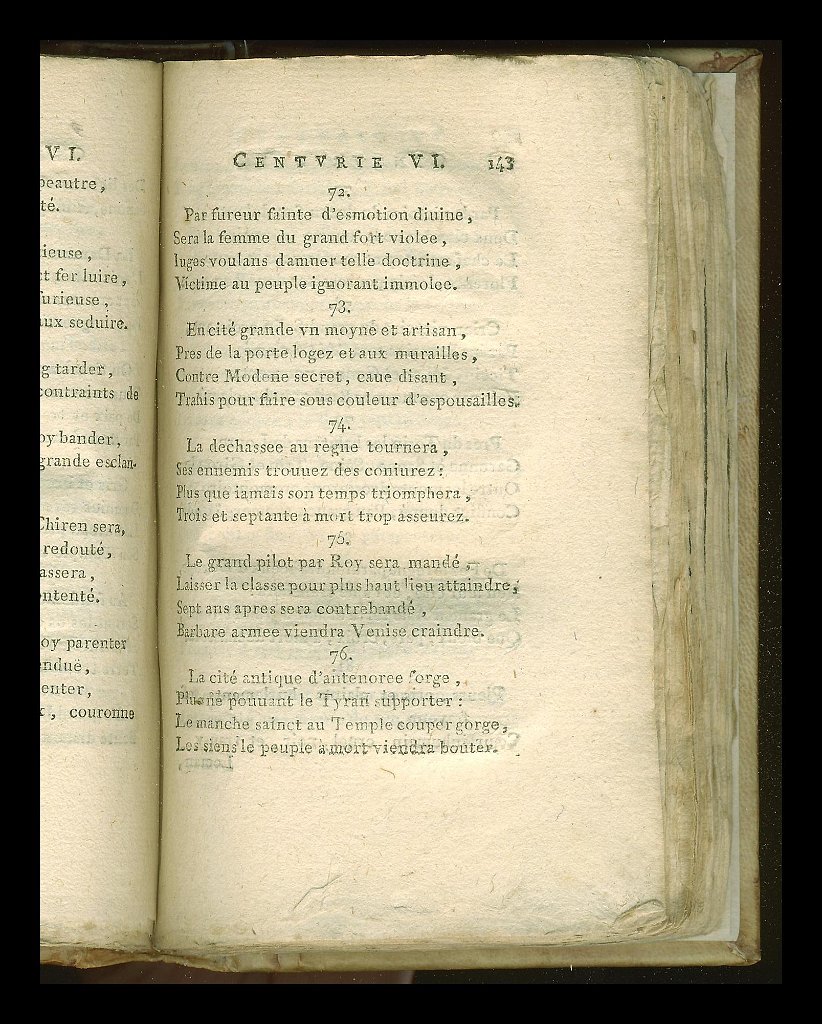 VI.
peautre,
té.
ieuse,
ct fer luire,
urieuse,
aux seduire.
g tarder,
contraints de
oy bander,
grande esclan-
Chiren sera,
redouté,
assera,
ontenté.
oy parenter
endue,
enter,
x, couronne
CENTVRIE VI. 143
72.
Par fureur fainte d'esmotion diuine,
Sera la femme du grand fort violee,
Iuges voulans damner telle doctrine,
Victime au peuple ignorant immolee.
73.
En cité grande vn moyne et artisan,
Pres de la porte logez et aux murailles,
Contre Modene secret, caue disant,
Trahis pour faire sous couleur d'espousailles.
74.
La dechassee au regne tournera,
Ses ennemis trouuez des coniurez:
Plus que iamais son temps triomphera,
Trois et septante à mort trop asseurez.
75.
Le grand pilot par Roy sera mandé,
Laisser la classe pour plus haut lieu attaindre,
Sept ans apres sera contrebandé,
Barbare armee viendra Venise craindre.
76.
La cité antique d'antenoree forge,
Plus ne pouuant le Tyran supporter:
Le manche sainct au Temple couper gorge,
Les siens le peuple à mort viendra bouter.